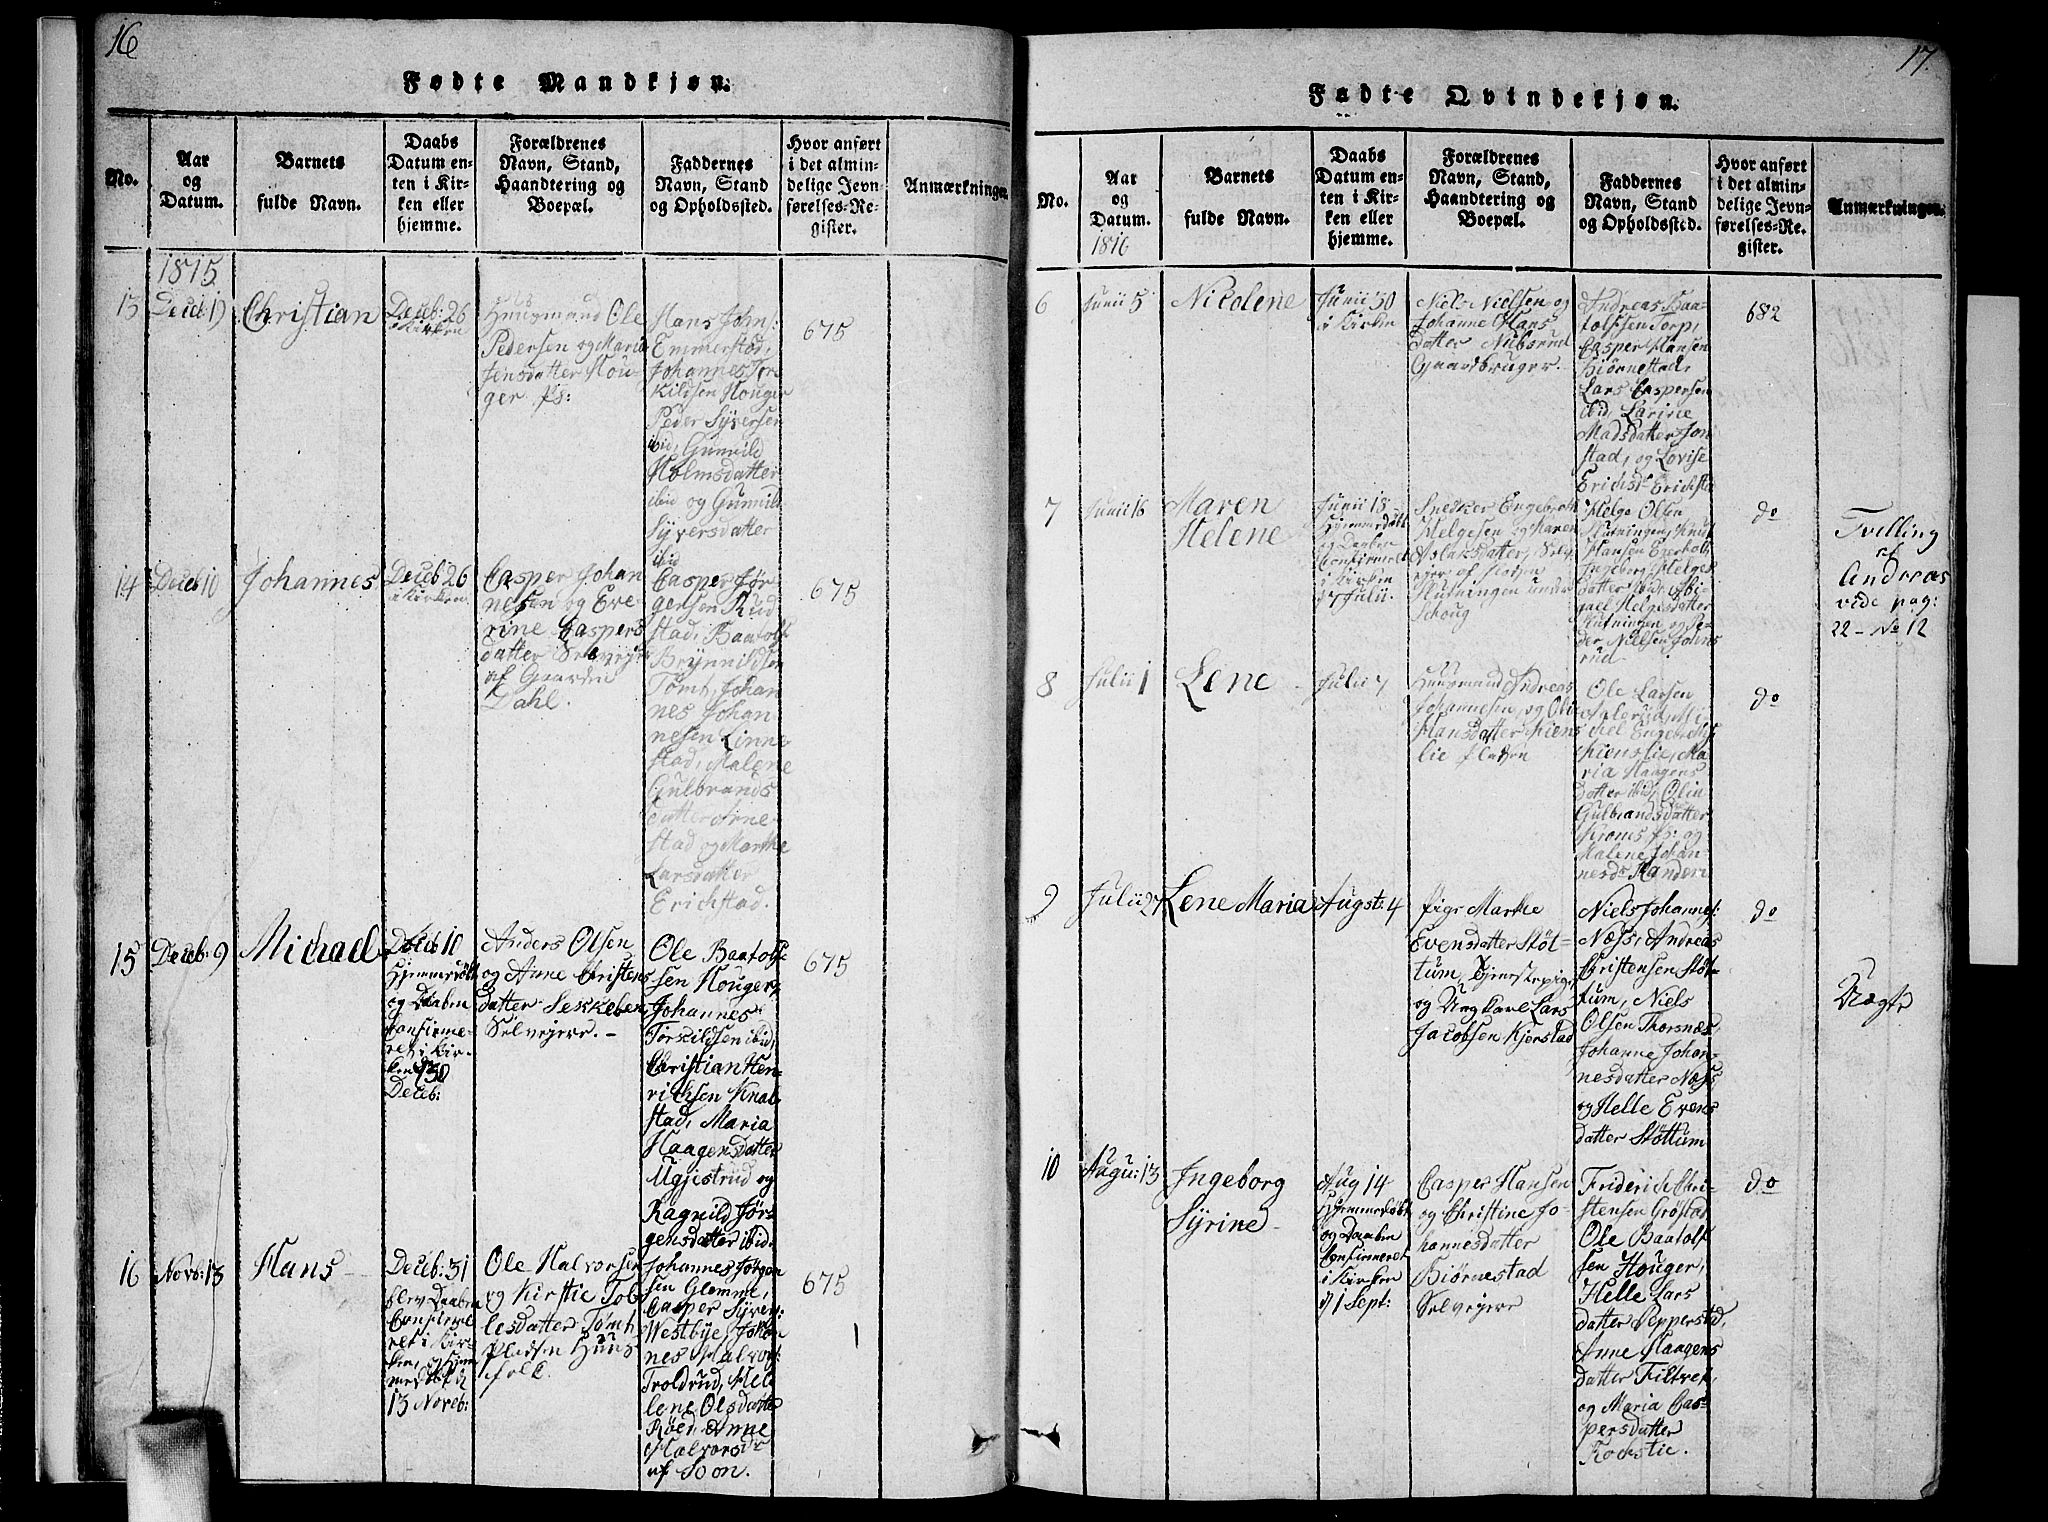 16
Fødte Mandkjøn.
No.
Aar
og
Datum.
Barnets
fulde Navn.
Daabs
Datum en-
ten i Kir-
ken eller
hjemme.
Forældrenes
Navn, Stand,
Haandtering og
Boepæl.
Faddernes
Navn, Stand
og Opholdssted.
Hvor anført
i det almin-
delige Jevn-
førelses-Re-
gister.
Anmærkninger.
1815
13
Deceb 19
Christian
Deceb: 26
i Kirken
Huusmand Ole
Pedersen og Maria
Jensdatter Hou-
ger Ps:
Hans Johns:
Emmerstad,
Johannes Tor
kildsen Houger
Peder Syversen
ibid, Gunnild
Holmsdatter
ibid og Gunnild
Syversdatter
ibid
675
14
Deceb 10
Johannes
Deceb 26
i Kirken
Casper Johan
nesen og Eve-
rine Caspers
datter Selveyer
af Gaarden
Dahl.
Casper Jør
gensen Rud
stad, Baatolf
Brynnildsen
Tømt, Johan
nes Johan
nesen Linne
stad, Malene
Gulbrands
datter Arne
stad og Marthe
Larsdatter
Erichstad.
675
15
Deceb: 9
Michael
Deceb 10
Hjemmedøbt
og Daaben
confirme-
ret i Kir-
ken d 30
Deceb:
Anders Olsen
og Anne Christens
datter Sekkeben
Selvejere. -
Ole Baatolf
sen Houger,
Johannes
Torkildsen ibid,
Christian Hen-
richsen Knal
stad, Maria
Haagensdatter
Ugjestrud og
Ragnild Jør-
gensdatter ibid.
675
16
Novb: 13
Hans
Deceb: 31
blev Daaben
Confirme
ret i Kir-
ken, og Hjem
medøbt d
13 Noveb:
Ole Halvorsen
og Kirstie Tob
iesdatter Tømt
pladsen Huus
folk.
Johannes Jørgen
sen Glemme,
Casper Syvers:
Westbye, Johan
nes Halvors:
Troldrud, Hel
lene Olsdatter
Røed, Anne
Halvorsdr
af Soon.
675
17.
Fødte Qvindekjøn.
No.
Aar
og
Datum.
1816
Barnets
fulde Navn.
Daabs
Datum en-
ten i Kir-
ken eller
hjemme.
Forældrenes
Navn, Stand,
Haandtering og
Boepæl.
Faddernes
Navn, Stand
og Opholdssted.
Hvor anført
i det almin-
delige Jevn-
førelses-Re-
gister.
Anmærkninger.
6
Junii 5
Nicolene
Junii 30
i Kirken
Niels Nielsen og
Johanne Hans
datter Nubørud
Gaardbruger.
Andreas Baa-
tolfsen Torp,
Casper Hansen
Biørnestad,
Lars Caspersen
ibid, Larine
Madsdatter Jon
stad, og Lovise
Erichsdr Erichsta
682
7
Junii 16
Maren
Helene
Junii 18
Hjemmedøbt
og Daaben
Confirmeret
i Kirken
d 7 Julii.
Snedker Engebreth
Helgesen og Maren
Aslaksdatter, Selv
eyer af Plads
Hutningen under
Schoug
Helge Olsen
Hutningen, Knut
Hansen Everholt,
Ingeborg Helges
datter ibid, Abi-
gael Helgesdatter
Hutningen og Pe-
der Nielsen Johns
rud
do
Tvilling
af
Andreas
vide pag:
22 - No 12
8
Julii 1
Lene
Julii 7
Huusmand Andreas
Johannesen, og Olia
Hansdatter Kiens
lie Pladsen
Ole Larsen
Alerud, Mi
chel Engebr.
Kienslie, Ma
ria Haagens
datter ibid, Olin
Gulbrandsdatter
Krones Ps: og
Malene Johan
nesdr Randeri
do
9
Julii 27
Lene Maria
Augst: 4
Pige Marthe
Evensdatter Støt-
tum, Tjenstepige
og Ungkarl Lars
Jacobsen Kjerstad
Niels Johannes:
Næss, Andreas
Christensen Støt-
tum, Niels
Olsen Thorsnæs,
Johanne Johan-
nesdatter Næss,
og Helle Evens
datter Støttum
do
Uægte
10
Augu: 13
Ingeborg
Syrine
Aug 14
Hjemmedøbt
og Daaben
Confirmeret
i Kirken
d 1 Sept:
Casper Hansen
og Christine Jo-
hannesdatter
Biørnestad
Selvejere
Friderich Chri-
stensen Grøstad
Ole Baatolf
sen Houger,
Helle Lars
datter Pepperstad,
Anne Haagens
datter Filtvet,
og Maria Cas-
persdatter
Rochstie.
do